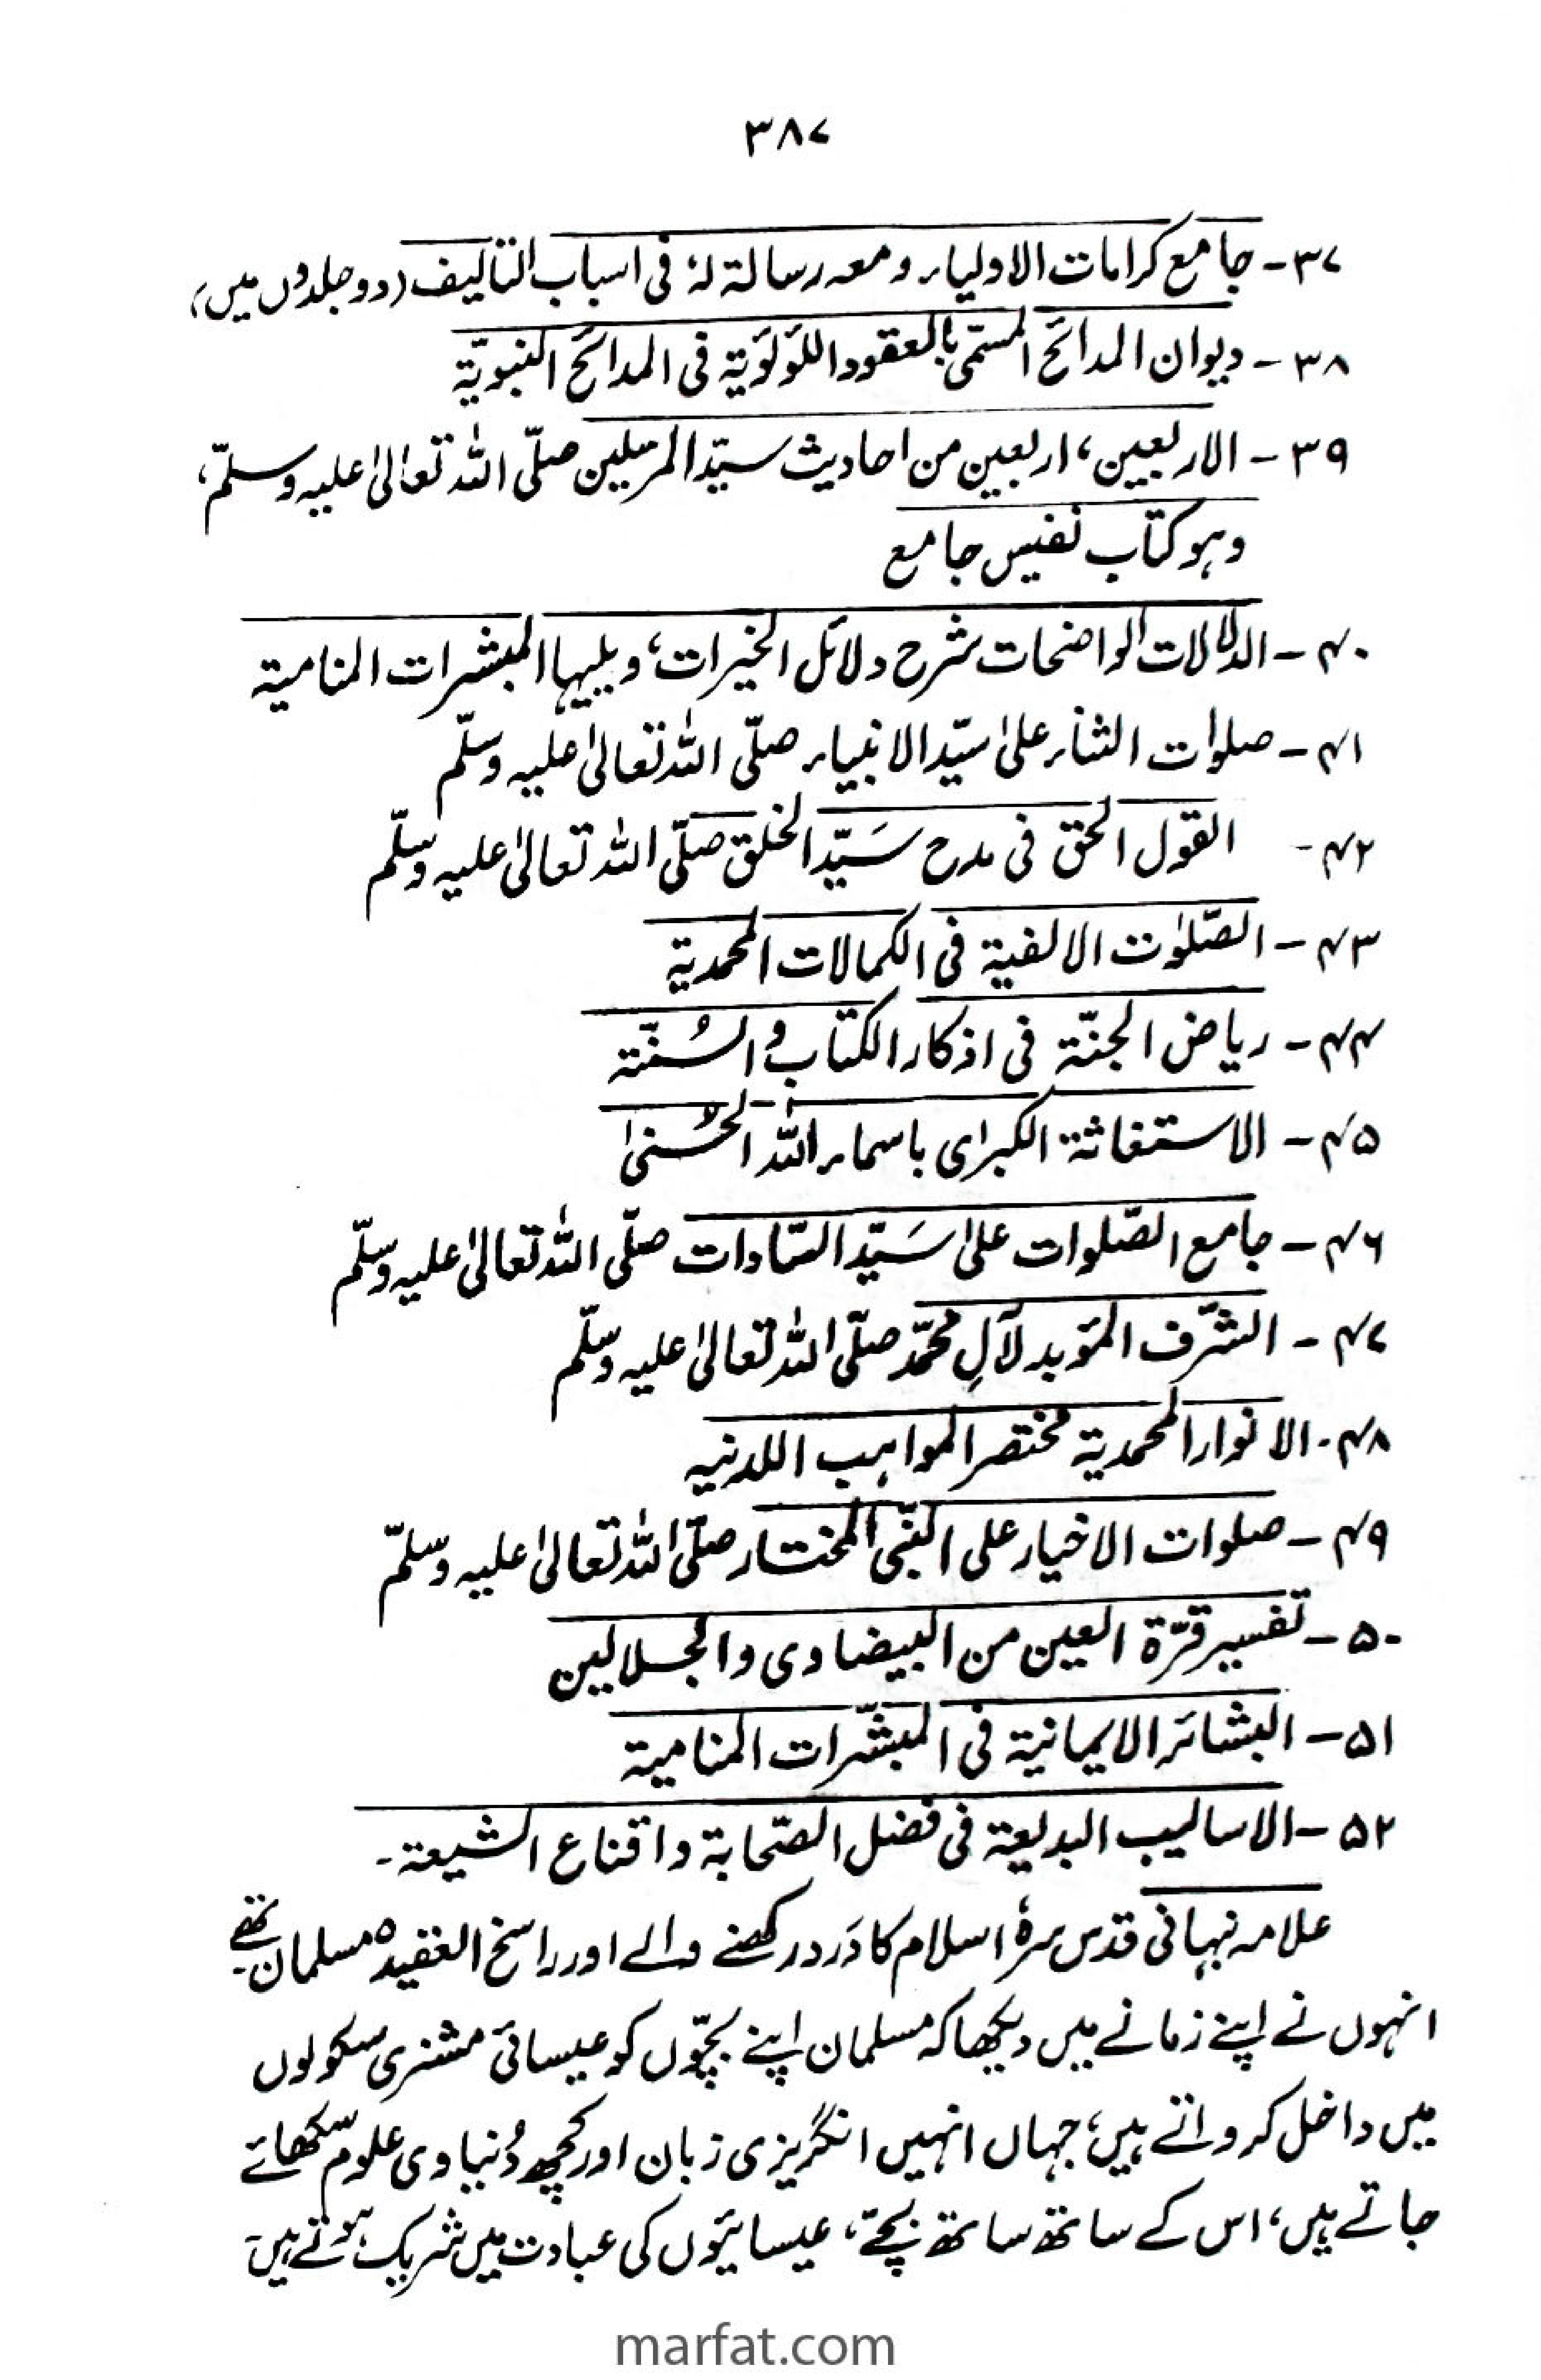 ۳۸۷
۳۷- جامع کرامات الاولیاء ومعہ رسالۃ لہٗ فی اسباب التالیف (دو جلدوں میں)
۳۸- دیوان المدائح المسمّٰی بالعقود اللؤلؤیۃ فی المدائح النبویّۃ
۳۹- الاربعین، اربعین من احادیث سیّد المرسلین صلّی اللہ تعالیٰ علیہ وسلّم،
وہو کتاب نفیس جامع
۴۰- الدلالات الواضحات شرح دلائل الخیرات، ویلیہا المبشرات المنامیۃ
۴۱- صلوات الثناء علیٰ سیّد الانبیاء صلّی اللہ تعالیٰ علیہ وسلّم
۴۲- القول الحق فی مدح سَیّد الخلق صلّی اللہ تعالیٰ علیہ وسلّم
۴۳- الصّلوٰت الالفیۃ فی الکمالات المحمدیۃ
۴۴- ریاض الجنّۃ فی اذکار الکتاب و السُنّۃ
۴۵- الاستغاثۃ الکبرٰی باسماء اللہ الحُسنیٰ
۴۶- جامع الصّلوات علیٰ سَیّد السّادات صلّی اللہ تعالیٰ علیہ وسلّم
۴۷- الشّرف المؤبد لآلِ محمّد صلّی اللہ تعالیٰ علیہ وسلّم
۴۸- الانوار المحمدیۃ مختصر المواہب اللدنیہ
۴۹- صلوات الاخیار علی النّبی المختار صلّی اللہ تعالیٰ علیہ وسلّم
۵۰- تفسیر قرّۃ العین من البیضاوی والجلالین
۵۱- البشائر الایمانیۃ فی المبشّرات المنامیۃ
۵۲- الاسالیب البدیعۃ فی فضل الصّحابۃ واقناع الشیعۃ۔
علامہ نبہانی قدس سرہٗ اسلام کا دَرد رکھنے والے اور راسخ العقیدہ مسلمان تھے۔
انہوں نے اپنے زمانے میں دیکھا کہ مسلمان اپنے بچّوں کو عیسائی مشنری سکولوں
میں داخل کرواتے ہیں، جہاں انہیں انگریزی زبان اور کچھ دُنیاوی علوم سکھائے
جاتے ہیں، اس کے ساتھ ساتھ بچّے، عیسائیوں کی عبادت میں شریک ہوتے ہیں۔
marfat.com